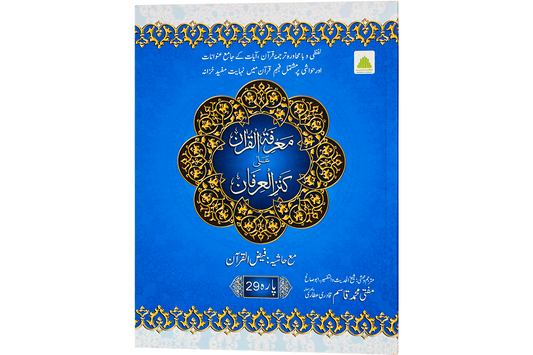 لفظی و بامحاورہ ترجمۂ قرآن، آیات کے جامع عنوانات
اور حواشی پر مشتمل فہمِ قرآن میں نہایت مفید خزانہ
معرفۃ القرآن
علیٰ
کنز العرفان
مع حاشیہ: فیض القرآن
مترجم و محشی: شیخ الحدیث والتفسیر ابو صالح
مفتی محمد قاسم قادری عطاری
پارہ 29